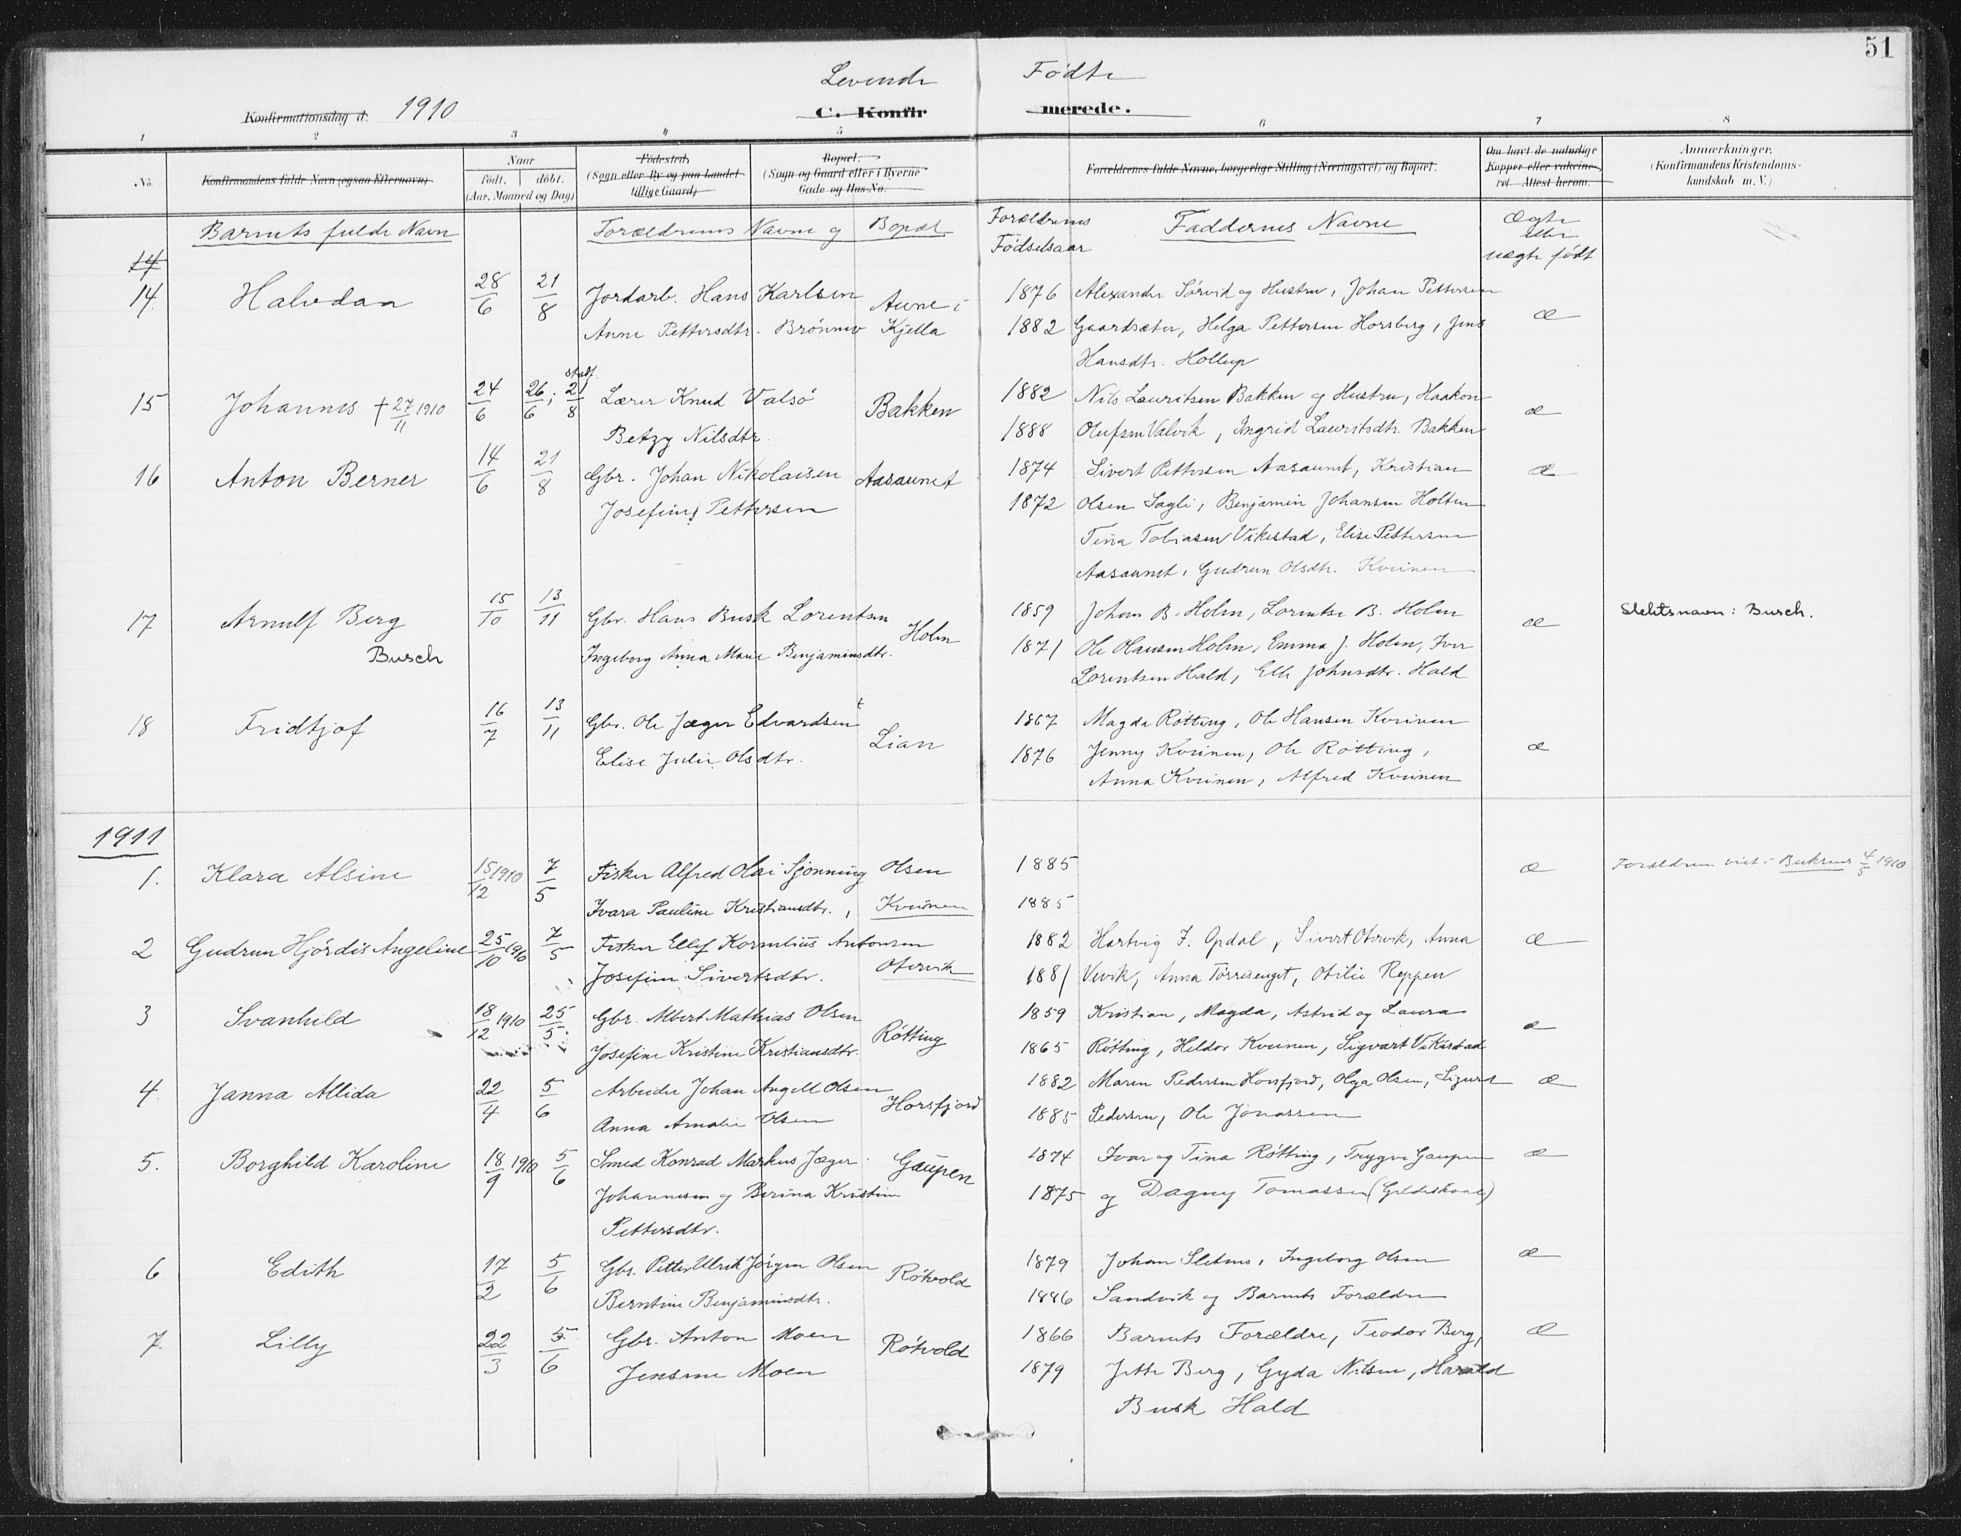 51
Levende Födte
Konfirmationsdag d. 1910 C. Konfirmerede.
1 2 3 4 5 6 7 8
No. Konfirmandens fulde Navn (ogsaa Efternavn) Naar født. døbt. (Aar, Maaned og Dag) Fødested. (Sogn eller By og paa Landet tillige Gaard) Bopæl. (Sogn og Gaard eller i Byerne Gade og Hus-No. Forældrenes fulde Navne, borgerlige Stilling (Næringsvei) og Bopæl. Om havt de naturlige Kopper eller vaccineret. Attest herom. Anmerkninger. (Konfirmandens Kristendomskundskab m. V.)
Barnets fulde Navn Forældrenes Navne og Bopæl Forældrenes Fødselsaar Faddernes Navne Ægte eller uægte født
14
14. Halvdan 28/6 21/8 Jordarb. Hans Karlsen Aune i 1876 Alexander Sörvid og Hustru, Johan Pettersen æ
Anne Pettersdtr. Brønnøy Kjella 1882 Gaardsæter, Helga Pettersen Horsberg, Jens
Hansdtr. Hollup
15 Johannes † 27/11 1910 24/6 26/6; stadf. 21/8 Lærer Knud Valsö Bakken 1882 Nils Lauritsen Bakken og Hustru, Haakon æ
Betzy Nilsdtr. 1888 Olufsen Valvik, Ingrid Lauritsdtr. Bakken
16 Anton Berner 14/6 21/8 Gbr. Johan Nikolaisen Aasaunet 1874 Sivert Pettersen Aasaunet, Kristian æ
Josefine Pettersen 1872 Olsen Sagli, Benjamin Johansen Holten
Tina Tobiasen Vikestad, Elise Pettersen
Aasaunet, Gudrun Olsdtr. Kvinen
17 Arnulf Berg 15/10 13/11 Gbr. Hans Busk Lorentsen Holm 1859 Johan B. Holm, Lorentse B. Holm æ Slektsnavn: Busch.
Busch Ingeborg Anna Marie Benjaminsdtr. 1871 Ole Hansen Holm, Emma J. Holm, Iver
Lorentsen Hald, Elle Johnsdtr. Hald
18 Fridtjof 16/7 13/11 Gbr. Ole Jæger Edvardsen Lian 1867 Magda Røtting, Ole Hansen Kvinen æ
Elise Julie Olsdtr. 1876 Jenny Kvinen, Ole Røtting,
Anna Kvinen, Alfred Kvinen
1911
1. Klara Alsine 15/12 1910 7/5 Fisker Alfred Olai Sjønning Olsen 1885 æ Forældren viet i Bukrens 4/5 1910
Ivara Pauline Kristiansdtr., Kvinen 1885
2 Gudrun Hjördis Angeline 25/10 1910 7/5 Fisker Ellef Kornelius Antonsen 1882 Hartvig F. Opdal, Sivert Otervik, Anna æ
Josefine Sivertsdtr. Otervik 1881 Vevik, Anna Torrisenget, Otilie Reppen
3 Svanhild 18/12 1910 25/5 Gbr. Albert Mathias Olsen Røtting 1859 Kristian, Magda, Astrid og Laura æ
Josefine Kristine Kristiansdtr. 1865 Røtting, Heldor Kvinen, Sigvart Vikestad
4. Janna Allida 22/4 5/6 Arbeider Johan Angell Olsen Horsfjord 1882 Maren Pedersen Horsfjord, Olga Olsen, Sigurd æ
Anna Amalie Olsen 1885 Pedersen, Ole Jonassen
5. Borghild Karoline 18/9 1910 5/6 Smed Konrad Markus Jæger Gaupen 1874 Ivar og Tina Røtting, Trygve Gaupen æ
Johannesen og Berina Kristine 1875 og Dagny Tomassen (Gildeskaal)
Pettersdtr.
6 Edith 17/2 5/6 Gbr. Petter Ulrik Jörgen Olsen Røtvold 1879 Johan Sletnes, Ingeborg Olsen æ
Berntine Benjaminsdtr. 1886 Sandvik og Barnets Forældre
7. Lilly 22/3 5/6 Gbr. Anton Moen Røtvold 1866 Barnets Forældre, Teodor Berg, æ
Jensine Moen 1879 Jette Berg, Gyda Nilsen, Harald
Busk Hald